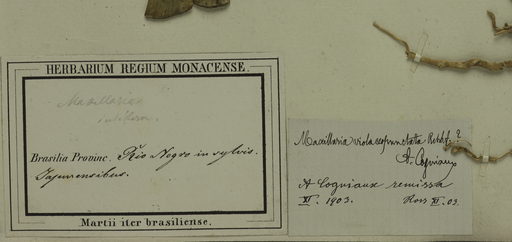 HERBARIUM REGIUM MONACENSE.
Maxillaria
Brasilia Provinc. Rio Negro in sylvis.
Japurensibus.
Martii iter brasiliense.
Maxillaria violaceopunctata Rchb. f. ?
A. Cogniaux
A Cogniaux remissa
XI. 1903. Ross XI. 03.